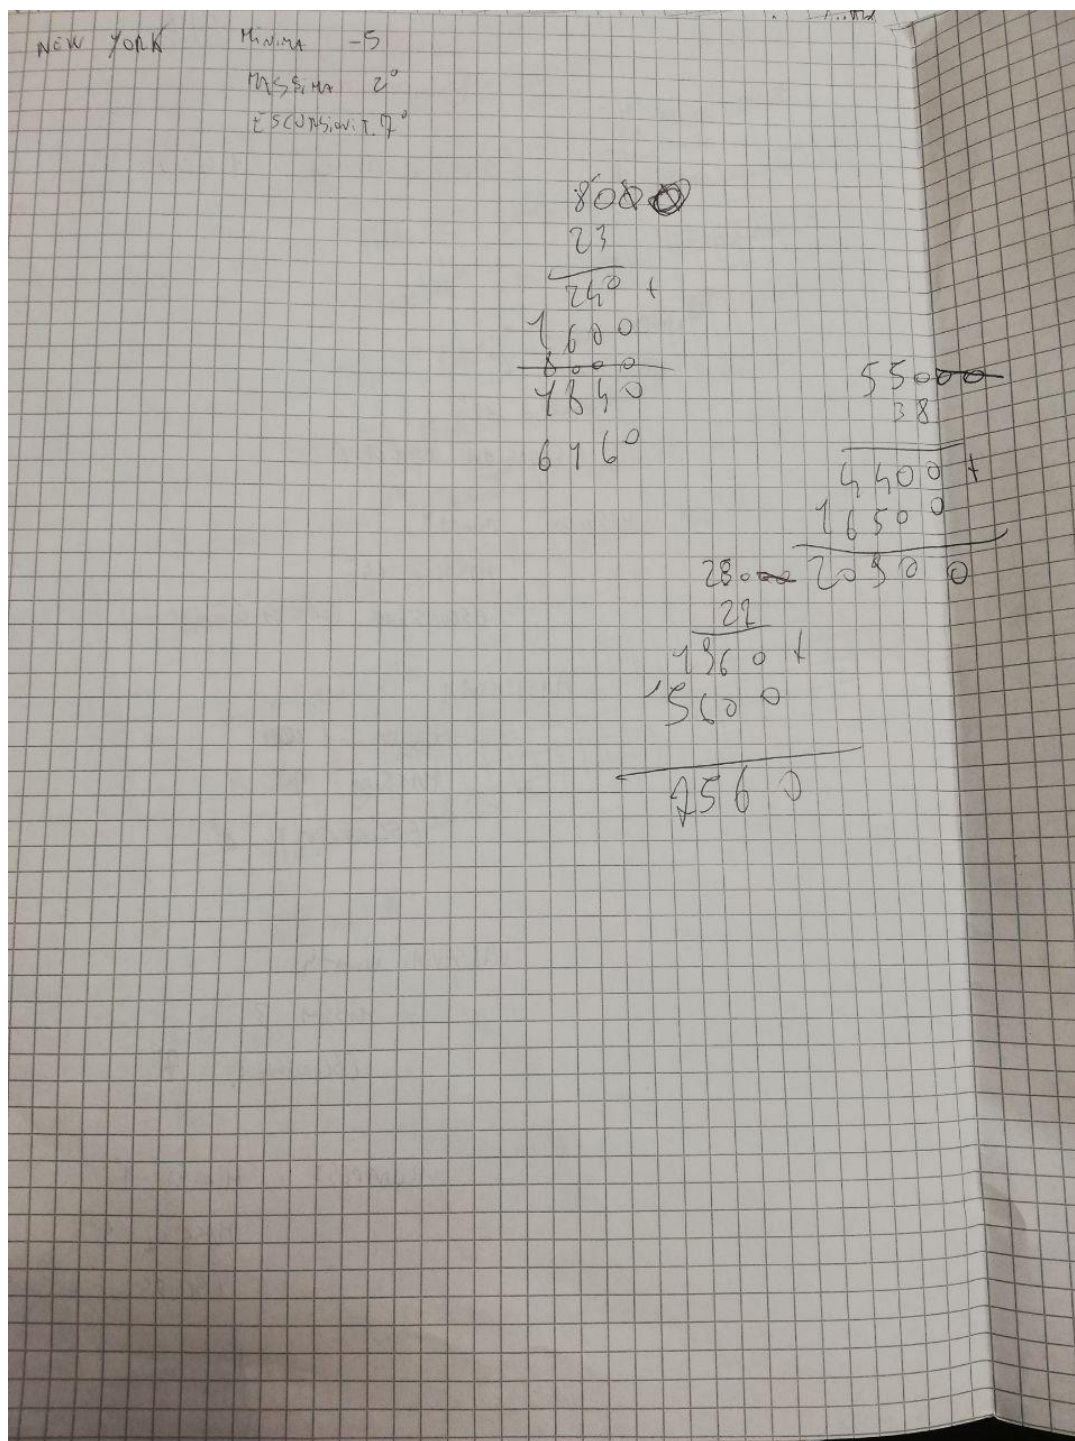 NEW YORK MINIMA -5
MASSIMA 2°
ESCURSIONE T. 7°
800
23
240 +
1600
1840
6160
55000
38
4400 +
16500
20900
28000
22
1960 +
5600
7560